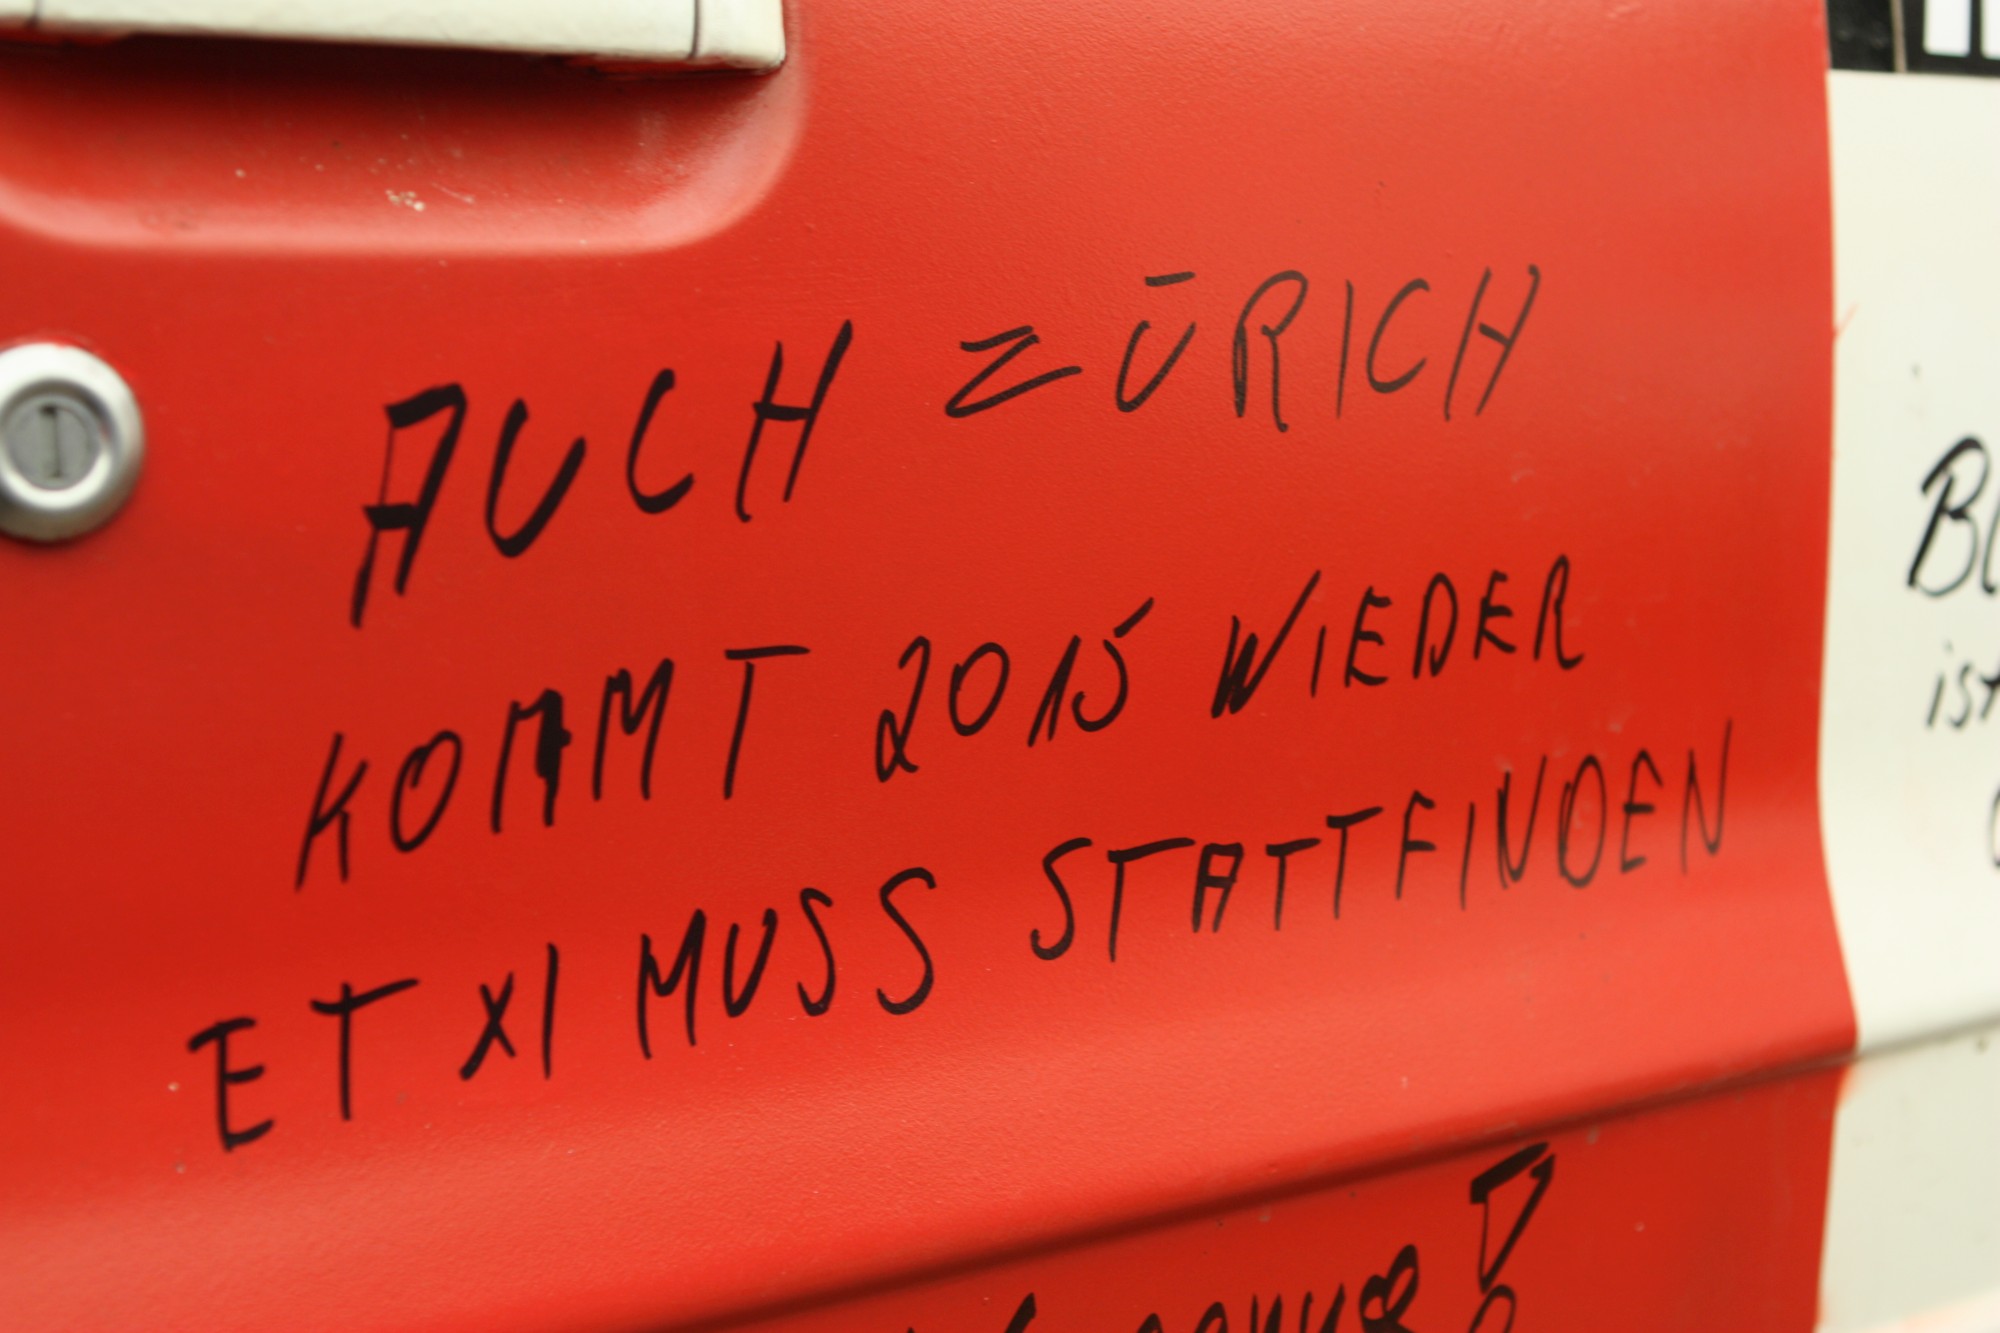 AUCH ZÜRICH
KOMMT 2015 WIEDER
ET XI MUSS STATTFINDEN